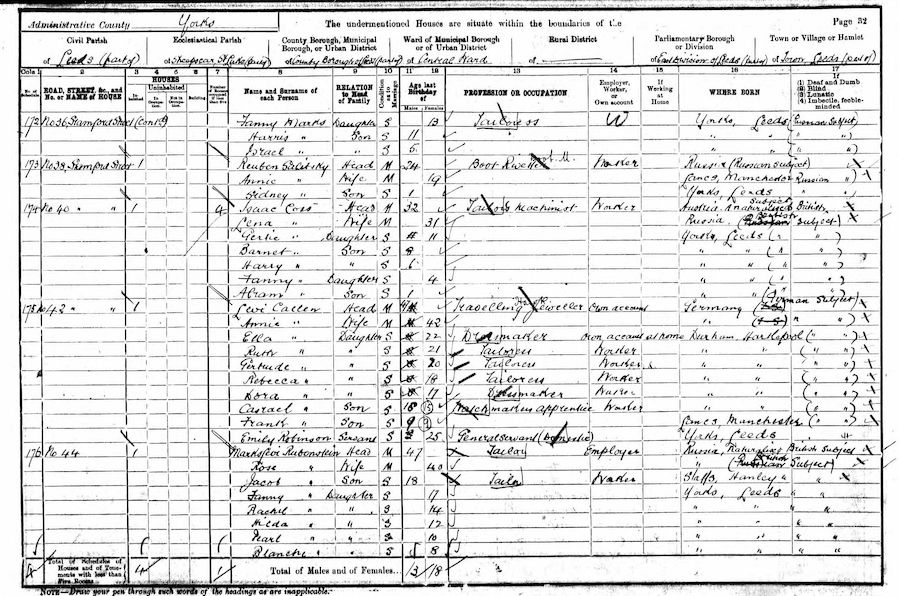 Administrative County Yorks
The undermentioned Houses are situate within the boundaries of the
Page 32
Civil Parish
Ecclesiastical Parish
County Borough, Municipal Borough, or Urban District
Ward of Municipal Borough or of Urban District
Rural District
Parliamentary Borough or Division
Town or Village or Hamlet
of Leeds (part of)
of County Borough of Leeds (part of)
of Central Ward
of
of East Division of Leeds (part of)
of Town Leeds (part of)
Cols 1 2 3 4 5 6 7 8 9 10 11 12 13 14 15 16 17
No. of Schedule
ROAD, STREET, &c., and No. or NAME of HOUSE
HOUSES
Inhabited
Uninhabited
In Occupation
Not in Occupation
Building
Name and Surname of each Person
RELATION to Head of Family
Condition as to Marriage
Age last Birthday of
Males Females
PROFESSION OR OCCUPATION
Employer, Worker, or Own account
If Working at Home
WHERE BORN
If
(1) Deaf and Dumb
(2) Blind
(3) Lunatic
(4) Imbecile, feeble-minded
172 No 36 Stamford Street (Contd) Fanny Marks Daughter S 13 Tailoress W Yorks, Leeds (German Subject)
Harris " Son S 11 " "
Israel " " S 5 " "
173 No 38 Stamford Street 1 Reuben Salitsky Head M 24 Boot Riveter Worker Russia (Russian Subject)
Annie " Wife M 19 Lancs, Manchester Russian "
Sidney " Son S 1 Yorks, Leeds "
174 No 40 " " 1 4 Isaac Coss Head M 32 Tailors Machinist Worker Austria, a naturalised British Subject
Lena " Wife M 31 Russia, (British Subject)
Gertie " Daughter S 11 Yorks, Leeds ( " " )
Barnet " Son S 8 " " ( " " )
Harry " " S 6 " " ( " " )
Fanny " Daughter S 4 " " ( " " )
Abram " Son S 1 " "
175 No 42 " " 1 Levi Catten Head M Travelling Jeweller Own account Germany (German Subject)
Annie " Wife M 42
Etta " Daughter S 22 Dressmaker Own account at home Durham, Hartlepool ( " " )
Ruth " " S 21 Tailoress Worker " " ( " " )
Gertrude " " S 20 Tailoress Worker " " ( " " )
Rebecca " " S 18 Tailoress Worker " " ( " " )
Dora " " S 17 Dressmaker Worker " " ( " " )
Son S 15 Watchmakers apprentice Worker " " ( " " )
Frank " Son S 9 Lancs, Manchester ( " " )
Emily Robinson Servant S 25 General servant (domestic) Yorks, Leeds
176 No 44 1 Rubenstein Head M 47 Tailor Employer Russia, Naturalised British Subject
Rose " Wife M 40 " (British Subject)
Jacob " Son S 18 Tailor Worker Staffs, Hanley " "
Fanny " Daughter S 17 Yorks, Leeds " "
Rachel " " S 14 " " " "
Hilda " " S 12 " " " "
Pearl " " S 10 " " " "
Blanche " " S 8 " " " "
4 Total of Schedules of Houses and of Tenements with less than Five Rooms 4 1 Total of Males and Females... 13 18
NOTE—Draw your pen through such words of the headings as are inapplicable.